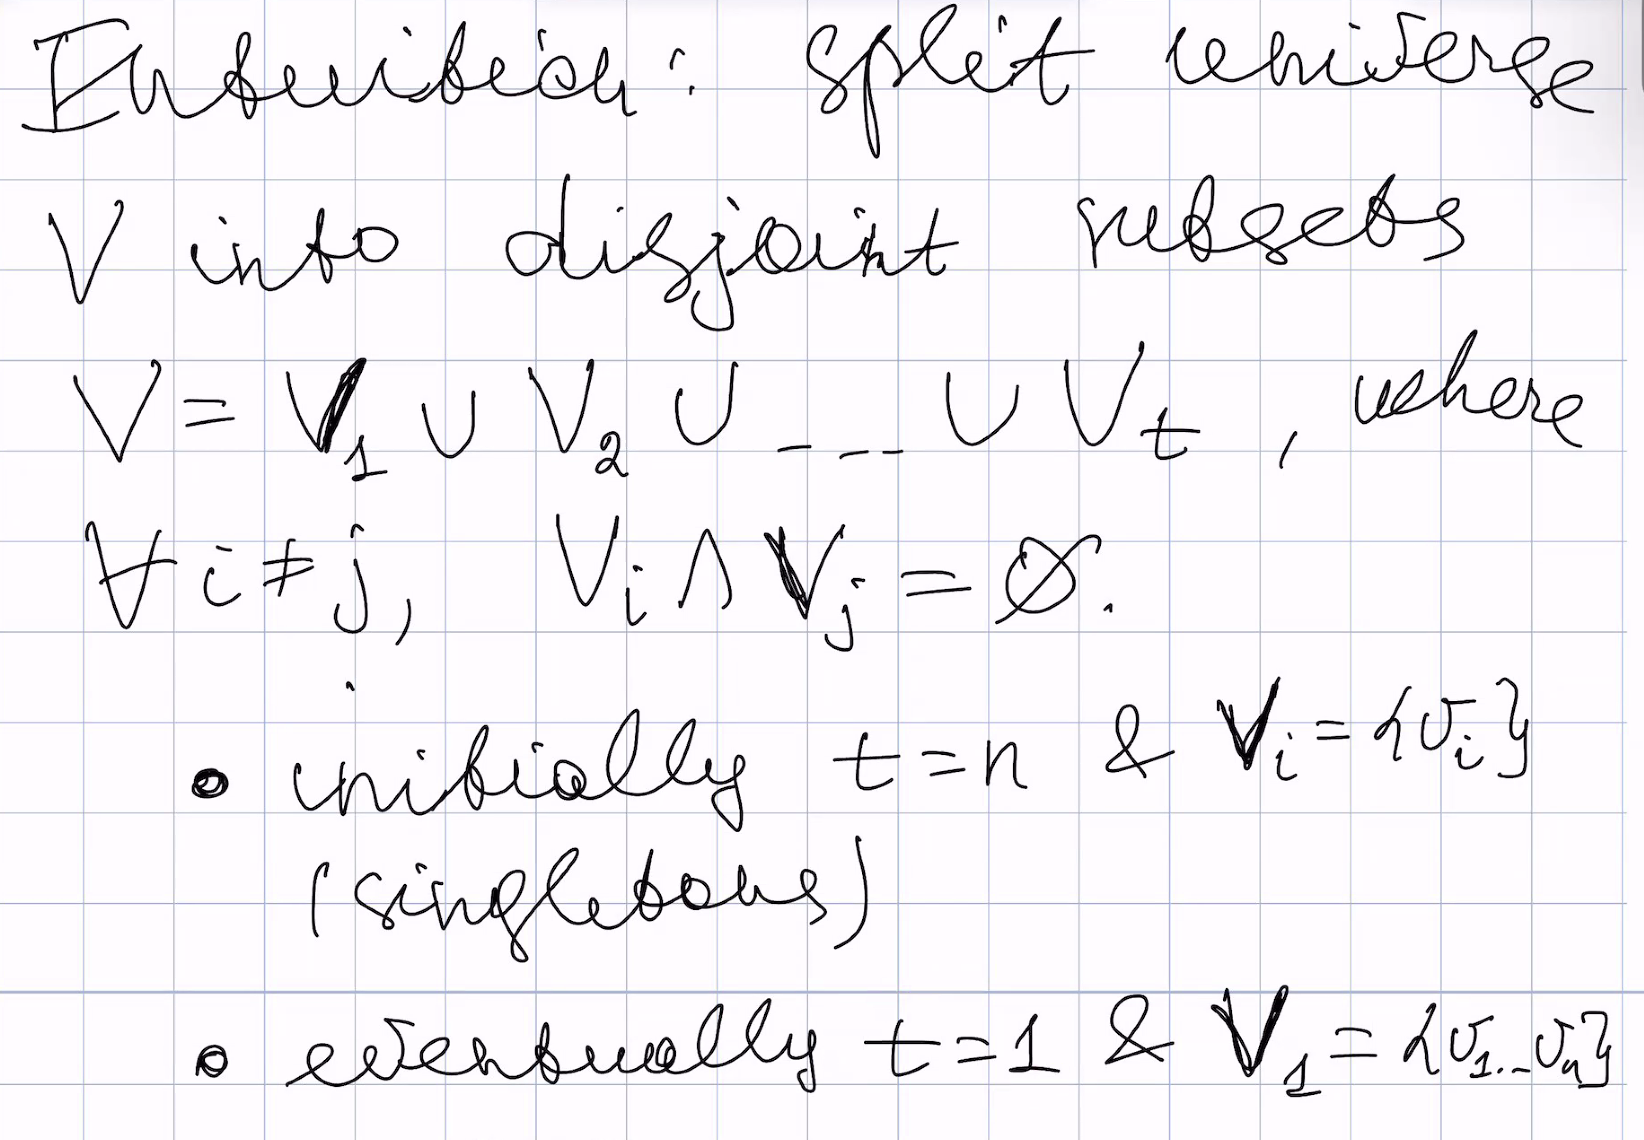 Intuition: split universe
V into disjoint subsets
V = V₁ ∪ V₂ ∪ ... ∪ Vₜ , where
∀ i ≠ j, Vᵢ ∩ Vⱼ = ∅.
• initially t = n & Vᵢ = {vᵢ}
(singletons)
• eventually t = 1 & V₁ = {v₁...vₙ}